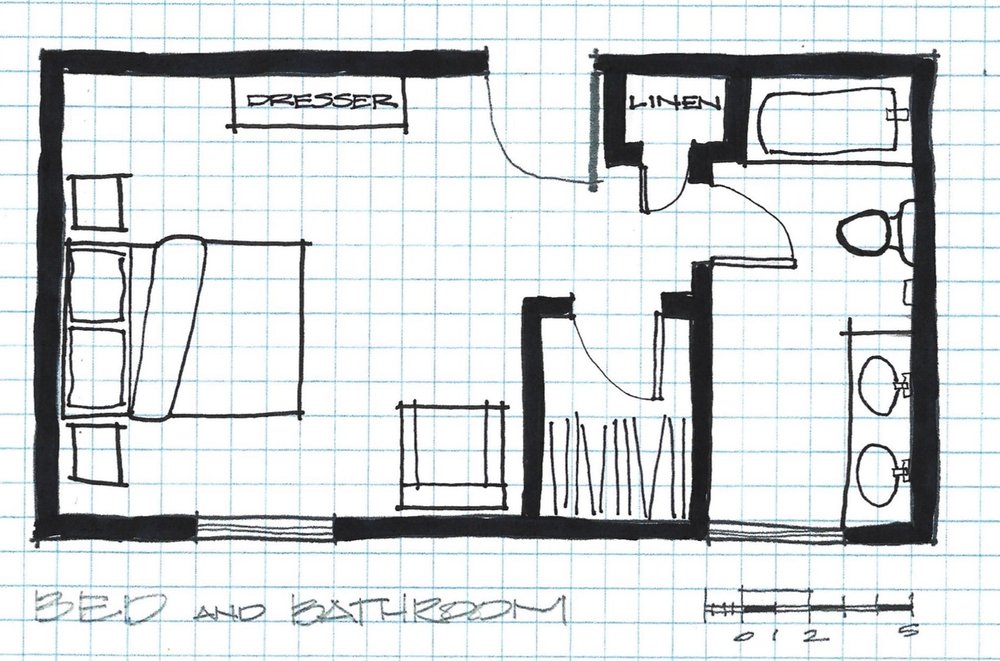 DRESSER
LINEN
BED AND BATHROOM
0 1 2 5